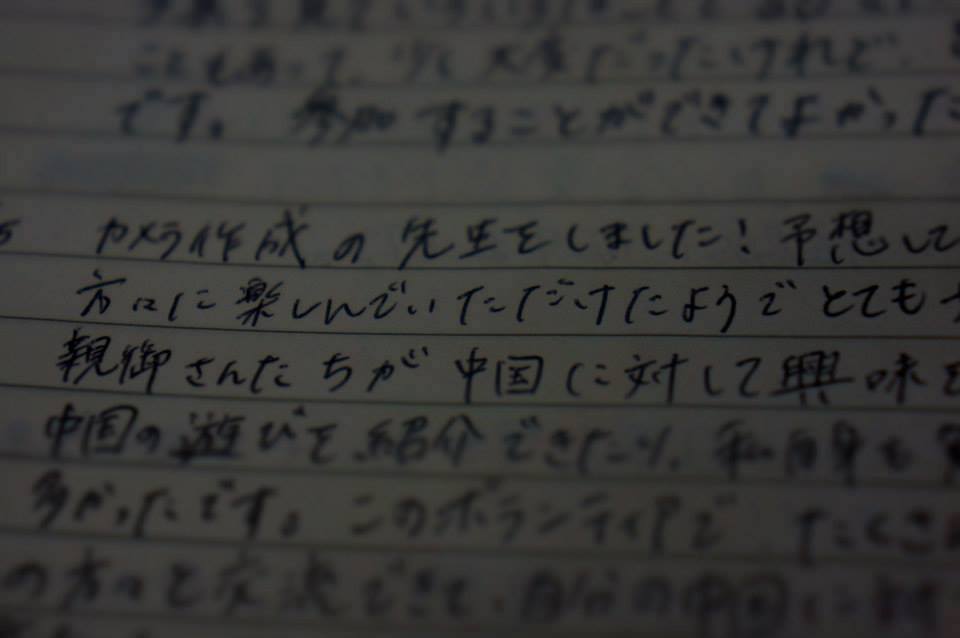 こともあって、少し大変だったけれど、
です。参加することができてよかった
カメラ作成の先生をしました！予想して
方々に楽しんでいただけたようでとても
親御さんたちが中国に対して興味を
中国の遊びを紹介できたり、私自身も
多かったです。このボランティアで たくさ
の方々と交流できて、自分の中国に対